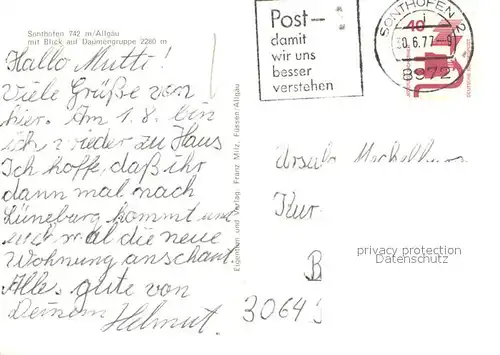 Sonthofen 742 m/Allgäu
mit Blick auf Daumengruppe 2280 m
Hallo Mutti!
Viele Grüße von
hier. Am 1.8. bin
ich wieder zu Haus
Ich hoffe, daß ihr
dann mal nach
Lüneburg kommt und
euch mal die neue
Wohnung anschaut
Alles gute von
Deinem Helmut.
Eigentum und Verlag. Franz Milz, Füssen/Allgäu
Post-
damit
wir uns
besser
verstehen
SONTHOFEN 2
0.6.77-9
8972
40
Ursula
Kur
B
3064
privacy protection
Datenschutz